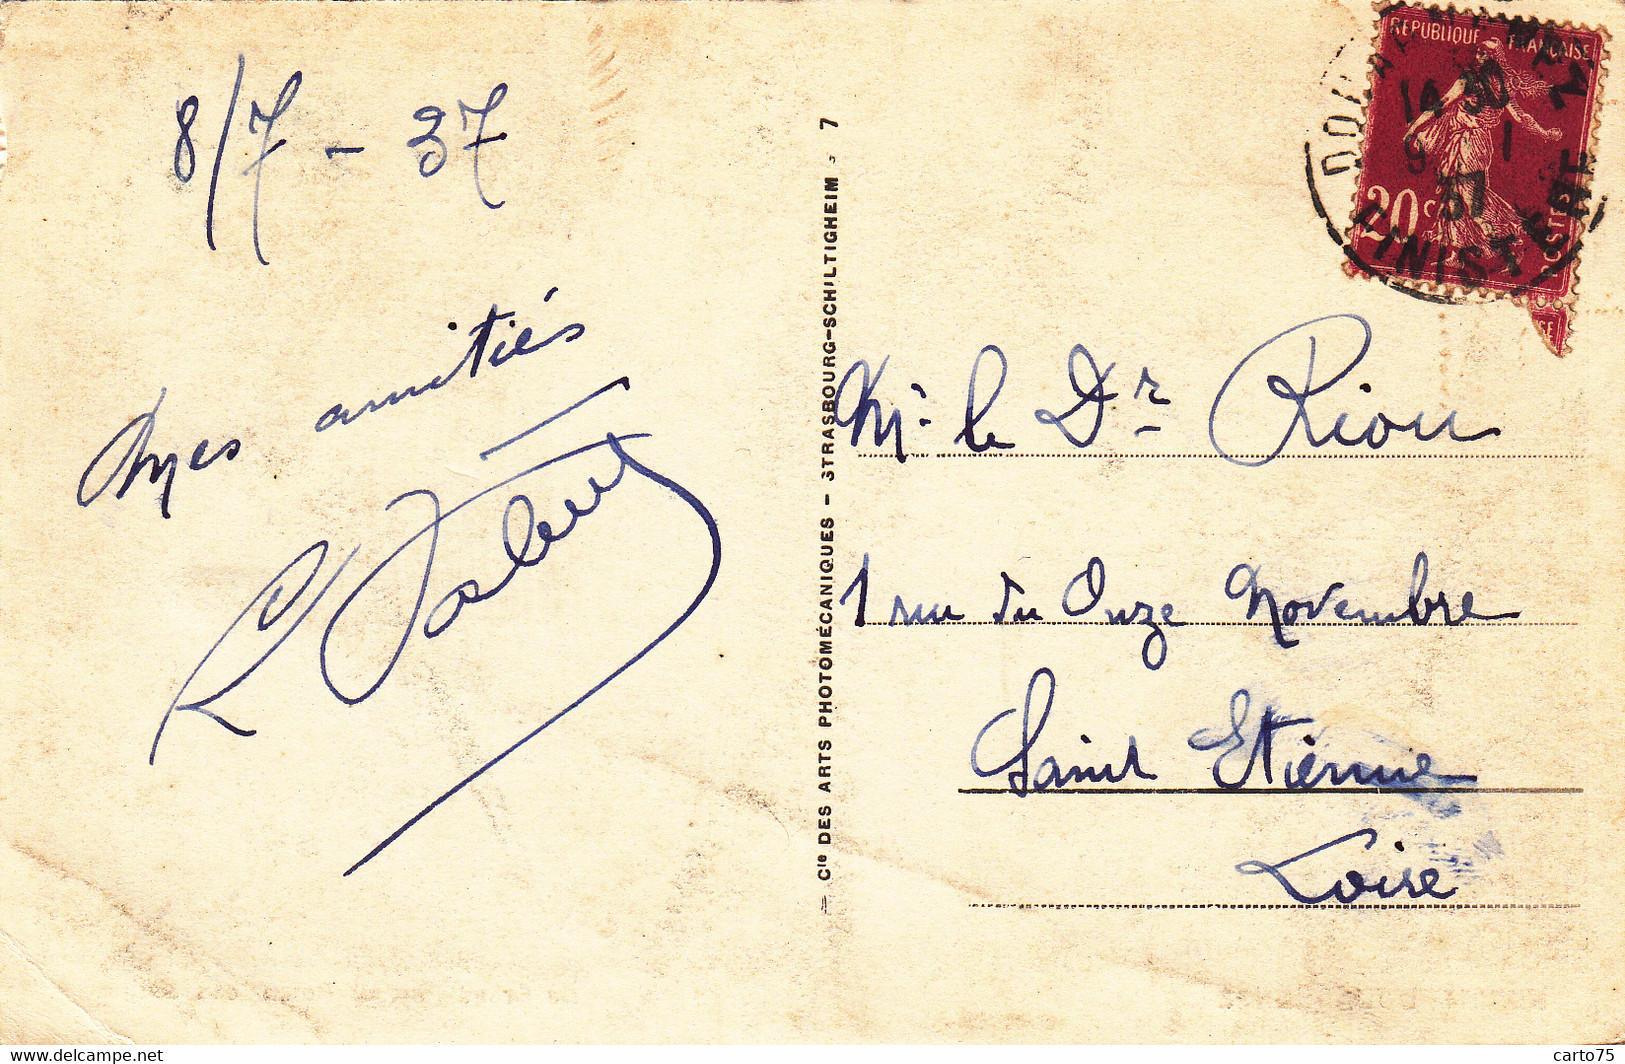 8/7 - 37
Mes amitiés
RÉPUBLIQUE FRANÇAISE
20c
POSTES
14 30
9 - 1
37
FINISTERE
Mr le Dr Riou
1 rue du Onze Novembre
Saint Etienne
Loire
— Cie DES ARTS PHOTOMÉCANIQUES – STRASBOURG-SCHILTIGHEIM - 7
delcampe.net
carto75